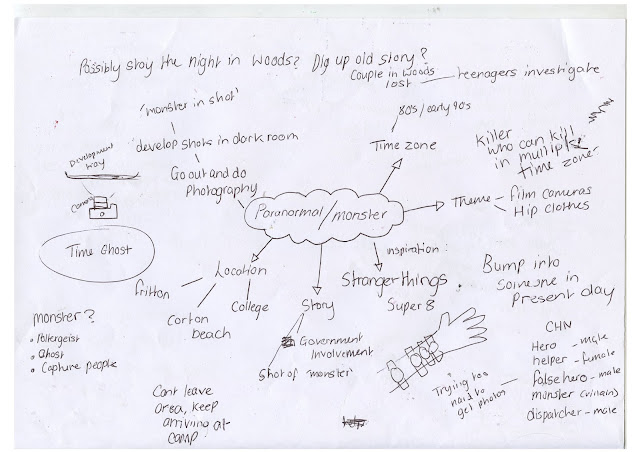 Possibly stay the night in woods? Dig up old story?
Couple in woods
lost
teenagers investigate
'monster in shot'
develop shots in dark room
Go out and do
Photography
80's/early 90's
Time zone
Killer
who can kill
in multiple
time zones
Development
way
Camera
Time Ghost
Paranormal/monster
Theme
film cameras
Hip clothes
inspiration:
Stranger things.
Super 8
Bump into
someone in
Present day
Location
fritton
Corton
beach
College
Story
Government
Involvement
Shot of 'monster'
monster?
• Poltergeist
• Ghost
• Capture people
Cant leave
area, keep
arriving at
camp
Trying too
hard to
get photos
CHN
Hero - male
helper - female
false hero - male
monster (villain)
dispatcher - male